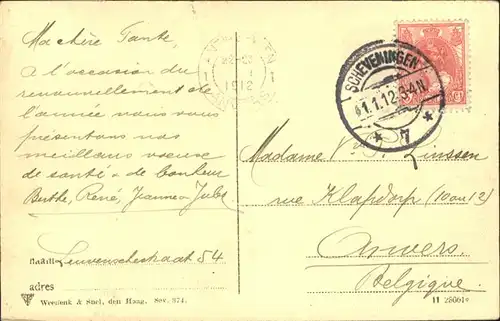 Ma chère Tante,
à l'occasion du
renouvellement de
l'année nous vous
présentons nos
meilleurs voeux
de santé & de bonheur
Berthe, René, Jeanne & Jules
54
adres
Weenenk & Snel, den Haag. Sev. 871.
1912
SCHEVENINGEN
1.1.12.3-4N
7
Madame Linssen
rue Klapdorp (10 ou 12)
Anvers
Belgique.